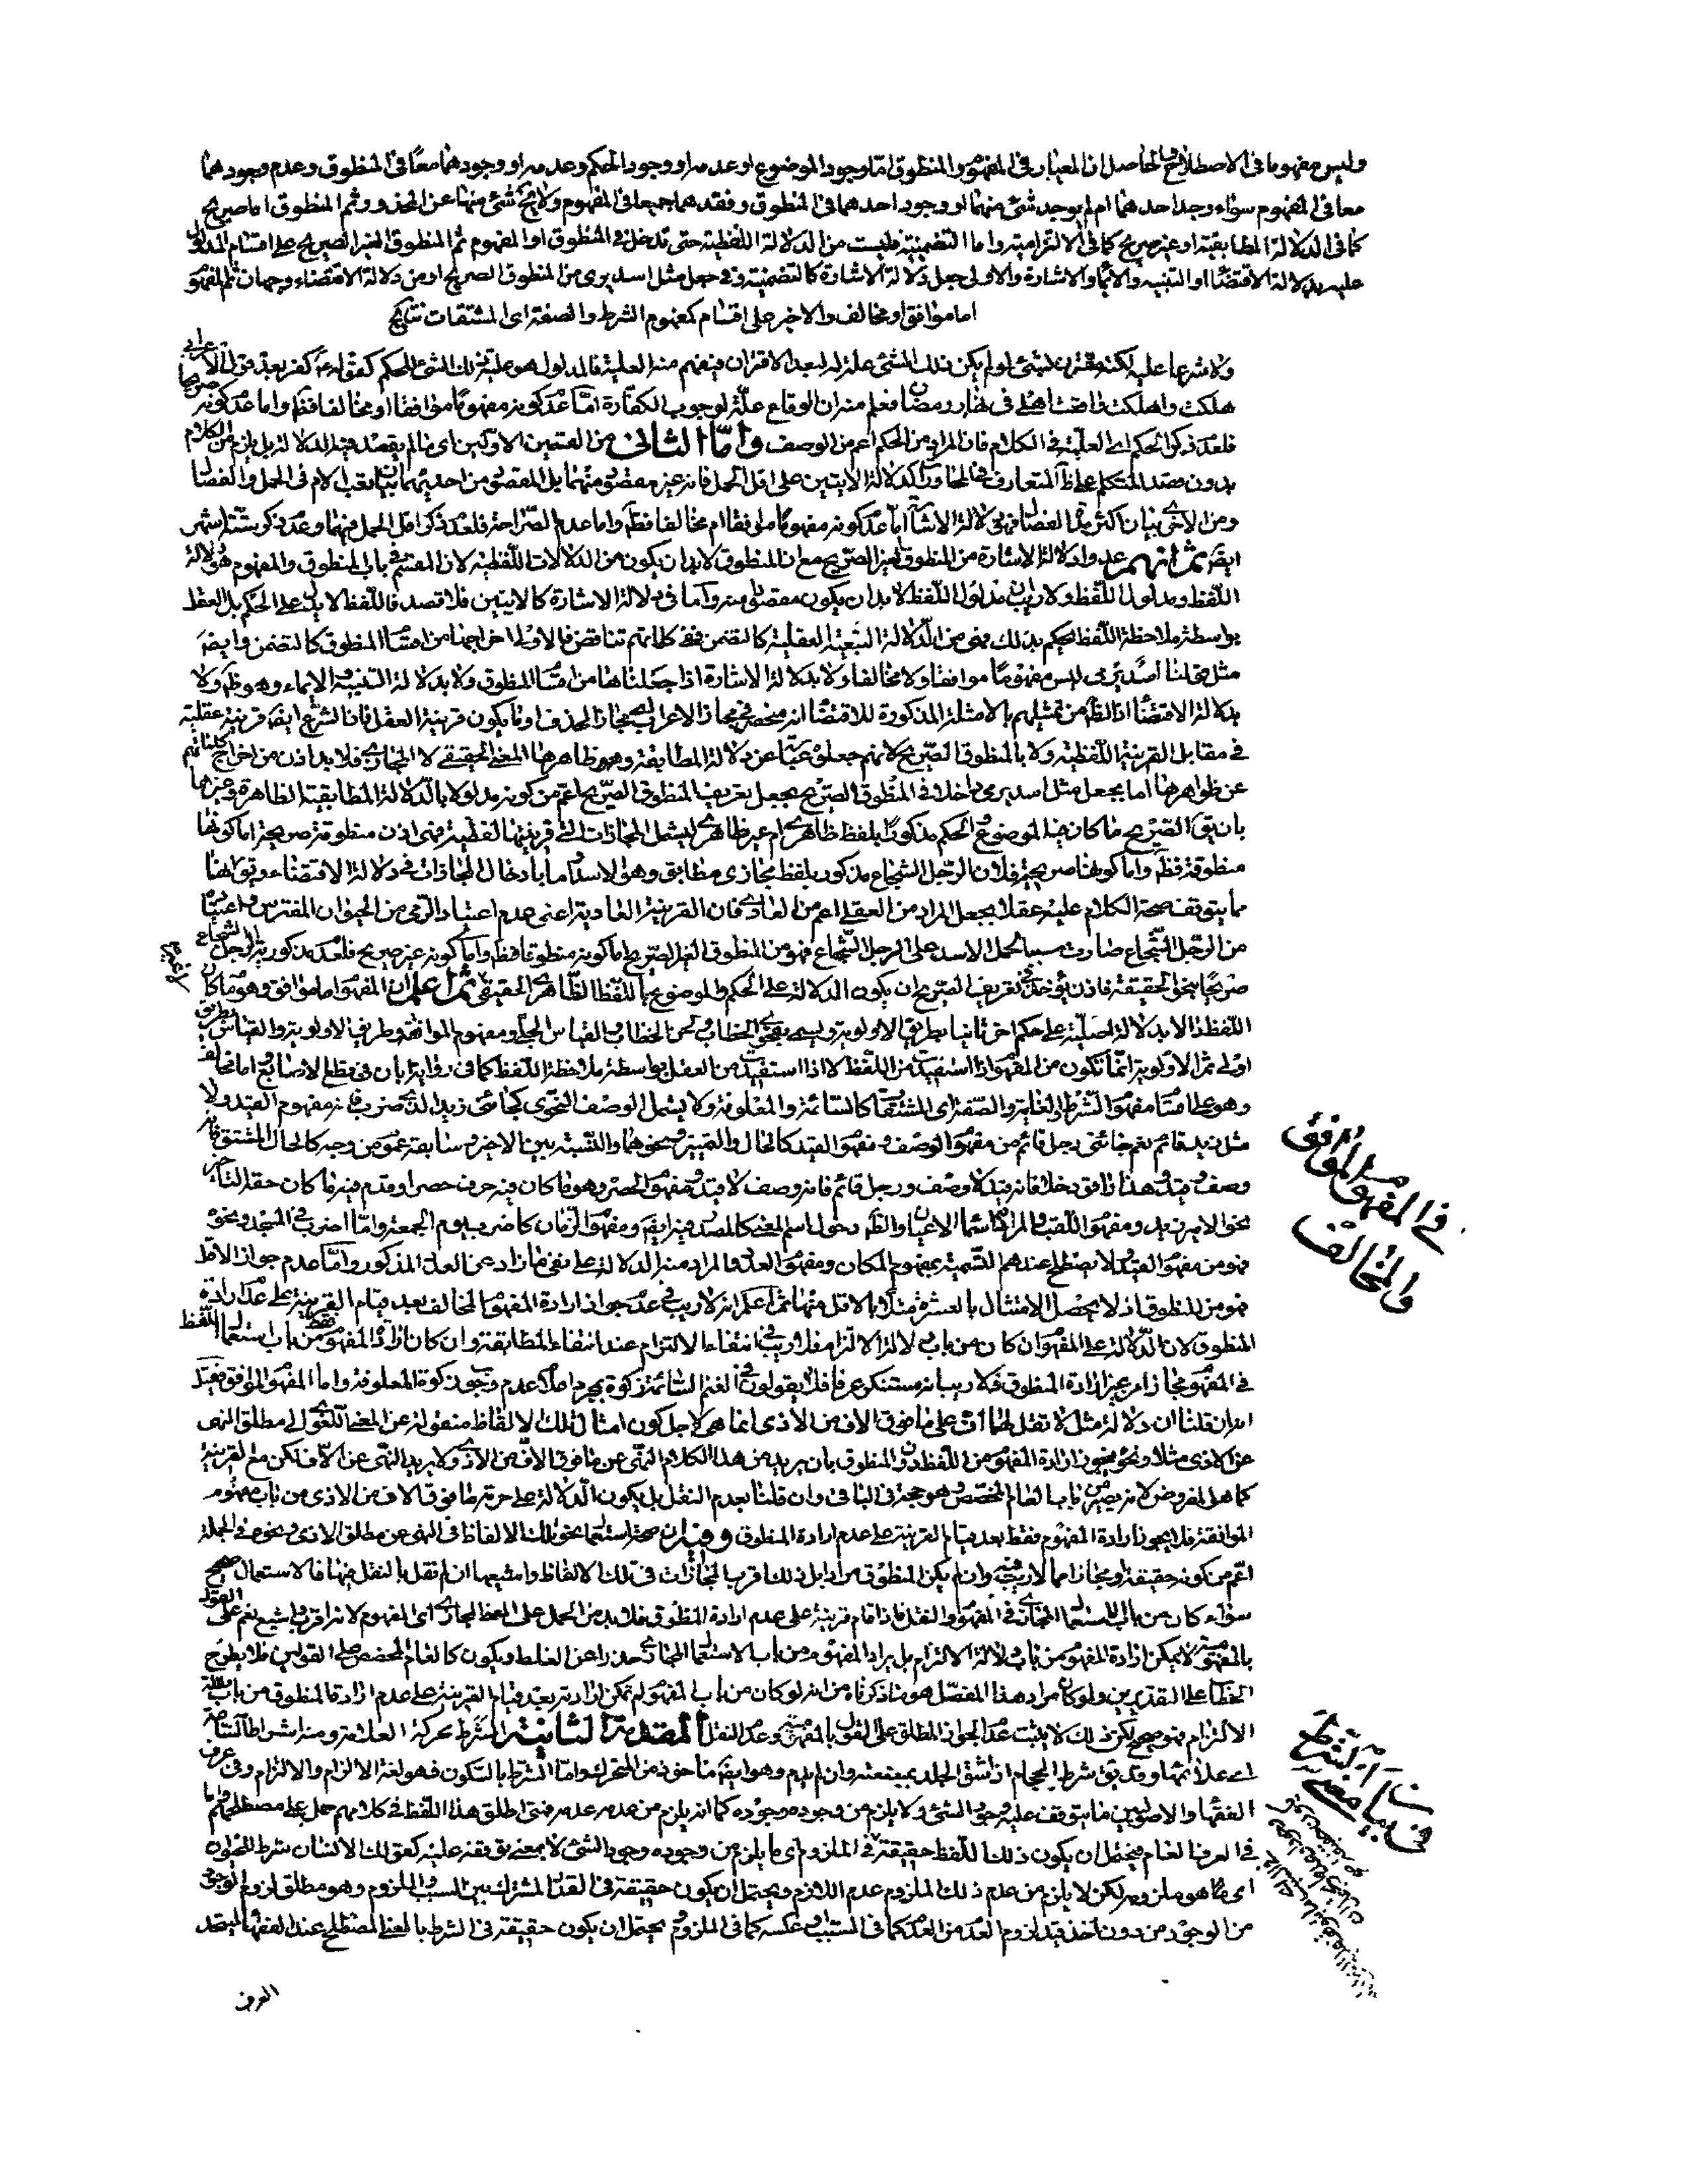 وليس مفهوما فى الاصطلاح والحاصل ان المعيار فى المفهوم والمنطوق اما وجود الموضوع او عدمه او وجود الحكم وعدمه او وجودهما معًا فى المنطوق وعدم وجودهما
معا فى المفهوم سواء وجد احدهما ام لم يوجد شئ منهما او وجود احدهما فى المنطوق وفقدهما جميعا فى المفهوم ولا يخ شئ منها عن المحذور ثم المنطوق اما صريح
كما فى الدلالة المطابقية او غير صريح كما فى الالتزامية واما التضمنية فليست من الدلالة اللفظية حتى تدخل فى المنطوق او المفهوم ثم المنطوق الغير الصريح على اقسام المدلول
عليه بدلالة الاقتضاء او التنبيه والايماء والاشارة والاولى جعل دلالة الاشارة كالتضمنية وفى جعل مثل اسد يرمى من المنطوق الصريح او من دلالة الاقتضاء وجهان ثم المفهوم
اما موافق او مخالف والاخير على اقسام كمفهوم الشرط والصفة اى المشتقات
ولا شرعا عليه لكنه مقترن بشئ لو لم يكن ذلك الشئ علة له لبعد الاقتران فيفهم منه العلية فالمدلول هو علية ذلك الشئ للحكم كقوله كفر بعد قول الاعرابى
هلكت واهلكت واقعت اهلى فى نهار رمضان فعلم منه ان الوقاع علة لوجوب الكفارة اما عدم كونه مفهوما موافقا او مخالفا فظ واما عدم كونه صريحا
فلعدم ذكر الحكم اى العلية فى الكلام فان المراد من الحكم اعم من الوصف واما الثانى من القسمين الاولين اى ما لم يقصد فيه الدلالة بل يلزم من الكلام
بدون قصد المتكلم على ظ المتعارف فى المحاورات كدلالة الايتين على اقل الحمل فانه غير مقصود منهما بل المقصود من احديهما بيان تعب الام فى الحمل والفصال
ومن الاخرى بيان اكثر مدة الفصال فهى دلالة الاشارة اما عدم كونه مفهوما موافقا ام مخالفا فظ واما عدم الصراحة فلعدم ذكر اقل الحمل فيهما وعدم ذكر ستة اشهر
ايضا ثم انهم عدوا دلالة الاشارة من المنطوق الغير الصريح مع ان المنطوق لابد ان يكون من الدلالات اللفظية لان المقسم فى باب المنطوق والمفهوم هو دلالة
اللفظ ومدلول اللفظ ولا ريب ان مدلول اللفظ لابد ان يكون مقصودا منه واما فى دلالة الاشارة كالايتين فلا قصد فاللفظ لا يدل على الحكم بل العقل
بواسطة ملاحظة اللفظ يحكم بذلك فهى من الدلالة التبعية العقلية كالتضمن ففى كلماتهم تناقض فالاولى اخراجها من اقسام المنطوق كالتضمن وايضا
مثل قولنا اسد يرمى ليس مفهوما موافقا ولا مخالفا ولا بدلالة الاشارة اذا جعلناها من اقسام المنطوق ولا بدلالة التنبيه والايماء وهو ظ ولا
بدلالة الاقتضاء اذ الظ من تمثيلهم بالامثلة المذكورة للاقتضاء انه منحصر فى مجاز الاعراب اى مجاز الحذف او ما يكون قرينة العقل فان الشرع ايضا قرينة عقلية
فى مقابل القرينة اللفظية ولا بالمنطوق الصريح لانهم جعلوه عبارة عن دلالة المطابقة وهو ظاهر فى المعنى الحقيقى لا المجازى فلا بد اذن من اخراج كلماتهم
عن ظواهرها اما بجعل مثل اسد يرمى داخلا فى المنطوق الصريح بجعل تعريف المنطوق الصريح اعم من كونه مدلولا بالدلالة المطابقية الظاهرة وغيرها
بان يق الصريح ما كان فيه الموضوع والحكم مذكورا بلفظ ظاهرى ام غير ظاهرى ليشمل المجازات التى قرينتها لفظية فهى اذن منطوقة صريحة اما كونها
منطوقة فظ واما كونها صريحة فلان الرجل الشجاع مذكور بلفظ مجازى مطابق وهو الاسد واما بادخال المجازات فى دلالة الاقتضاء ويق انها
مما يتوقف صحة الكلام عليه عقلا بجعل المراد من العقلى اعم من العادى فان القرينة العادية اعنى عدم اعتياد الرمى من الحيوان المفترس واعتياده
من الرجل الشجاع صارت سببا لحمل الاسد على الرجل الشجاع فهو من المنطوق الغير الصريح اما كونه منطوقا فظ واما كونه غير صريح فلعدم مذكورية الرجل الشجاع
صريحا بنحو الحقيقة فاذن يؤخذ فى تعريف الصريح ان يكون الدلالة على الحكم والموضوع باللفظ الظاهرى الحقيقى ثم اعلم ان المفهوم اما موافق وهو ما كان
اللفظ دالا بدلالة اصلية على حكم اخر ثابتا بطريق الاولوية ويسمى بفحوى الخطاب ولحن الخطاب والقياس الجلى ومفهوم الموافقة وطريق الاولوية والقياس بطريق
اولى ثم الاولوية انما تكون من المفهوم اذا استفيدت من اللفظ لا اذا استفيدت من العقل بواسطة ملاحظة اللفظ كما فى رواية ابان فى قطع الاصابع اما مخالف
وهو على اقسام مفهوم الشرط والغاية والصفة اى المشتقات كالسائمة والمعلوفة ولا يشمل الوصف النحوى كجائنى زيد الذى ضرب فانه مفهوم القيد ولا
مثل زيد قائم نعم جائنى رجل قائم من مفهوم الوصف ومفهوم القيد كالحال والتمييز ونحوهما والنسبة بين الاخير وسابقه عموم من وجه كالحال المشتق فانه
وصف وقيد وهذا زاق دخلا فانه قيد لا وصف ورجل قائم فانه وصف لا قيد ومفهوم الحصر وهو ما كان فيه حرف حصر او قدم فيه ما كان حقه التأخير
نحو الامير زيد ومفهوم اللقب والمراد اسماء الاعيان والظ دخول اسم المعنى كالمصدر فيه ايضا ومفهوم الزمان كاضرب يوم الجمعة واما اضرب فى المسجد ونحوه
فهو من مفهوم القيد ولا يصطلح عندهم التسمية بمفهوم المكان ومفهوم العدد والمراد منه الدلالة على نفى ما زاد عن العدد المذكور واما عدم جواز الاقل
فهو من المنطوق اذ لا يحصل الامتثال بالعشرة مثلا بالاقل منها ثم اعلم انه لا ريب فى عدم جواز ارادة المفهوم المخالف بعد قيام القرينة على عدم ارادة
المنطوق لان الدلالة على المفهوم ان كان من باب دلالة الالتزام فلا ريب فى انتفاء الالتزام عند انتفاء المطابقة وان كان ارادة المفهوم فقط من باب استعمال اللفظ
فى المفهوم مجازا من غير ارادة المنطوق فلا ريب انه مستنكر عرفا فلا يقولون فى الغنم السائمة زكوة بمجرد افادة عدم وجوب زكوة المعلوفة واما المفهوم الموافق فيمكن
انه ان قلنا ان دلالة مثل لا تقل لهما اف على ما فوق الاف من الاذى انما هى لاجل كون امثال تلك الالفاظ منقولة عن المعنى اللغوى الى مطلق النهى
عن الاذى مثلا ونحوه فيجوز ارادة المفهوم من اللفظ دون المنطوق بان يريد من هذا الكلام النهى عن ما فوق الاف من الاذى ولا يريد النهى عن الاف لكن مع القرينة
كما هو المفروض لانه يصير من باب العام المخصص وهو حجة فى الباقى وان قلنا بعدم النقل بل يكون الدلالة على حرمة ما فوق الاف من الاذى من باب مفهوم
الموافقة فلا يجوز ارادة المفهوم فقط بعد قيام القرينة على عدم ارادة المنطوق وفيه ان صحة استعمال نحو تلك الالفاظ فى النهى عن مطلق الاذى ونحوه فى الجملة
اعم من كونه حقيقة او مجازا مما لا ريب فيه وان لم يكن المنطوق مرادا بل ذلك اقرب المجازات فى تلك الالفاظ واشيعها ان لم نقل بالنقل فيها فالاستعمال صحيح
سواء كان من باب الاستعمال المجازى فى المفهوم والنقل فاذا قام قرينة على عدم ارادة المنطوق فلابد من الحمل على المعنى المجازى اى المفهوم لانه اقرب واشيع نعم على القول
بالمفهومية لا يمكن ارادة المفهوم من باب دلالة الالتزام بل يراد المفهوم من باب الاستعمال المجازى حذرا عن الغلط ويكون كالعام المخصص على القولين فلا يطرح
الخطاب على التقديرين ولو كان مراد هذا المفصل هو ما ذكرناه من انه لو كان من باب المفهوم لم تمكن ارادته بعد قيام القرينة على عدم ارادة المنطوق من باب دلالة
الالتزام فهو صحيح لكن ذلك لا يثبت عدم الجواز المطلق على القول بالمفهوم وعدم النقل المقدمة الثانية الشرط محركة العلامة ومنه اشراط الساعة
اى علاماتها وقد يق شرط الحجام اذا شق الجلد بمبضعته وان لم يدم وهو ايضا مأخوذ من المتحرك واما الشرط بالسكون فهو لغة الالزام والالتزام وفى عرف
الفقهاء والاصوليين ما يتوقف عليه وجود الشئ ولا يلزم من وجوده وجوده كما انه يلزم من عدمه عدمه فمتى اطلق هذا اللفظ فى كلامهم حمل على مصطلحهم واما
فى العرف العام فيحتمل ان يكون ذلك اللفظ حقيقة فى الملزوم اى ما يلزم من وجوده وجود الشئ لا بمعنى توقفه عليه كقولك الانسان شرط للحيوان
اى ما هو ملزومه لكن لا يلزم من عدم ذلك الملزوم عدم اللازم ويحتمل ان يكون حقيقة فى القدر المشترك بين السبب والملزوم وهو مطلق لزوم الوجود
من الوجود من دون اخذ قيد لزوم العدم من العدم كما فى السبب وعكسه كما فى الملزوم ويحتمل ان يكون حقيقة فى الشرط بالمعنى المصطلح عند الفقهاء ليتحد
العرف
فى المفهوم الموافق
والمخالف
فى بيان معنى الشرط